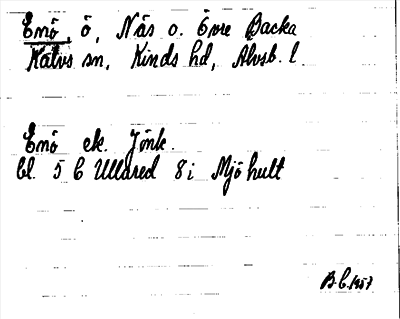 Enö, ö, Näs o. Övre Backa
Kalvs sn, Kinds hd, Älvsb. l.
Enö ek. Jönk.
bl. 5 C Ullared 8 i Mjöhult
B.C. 1957